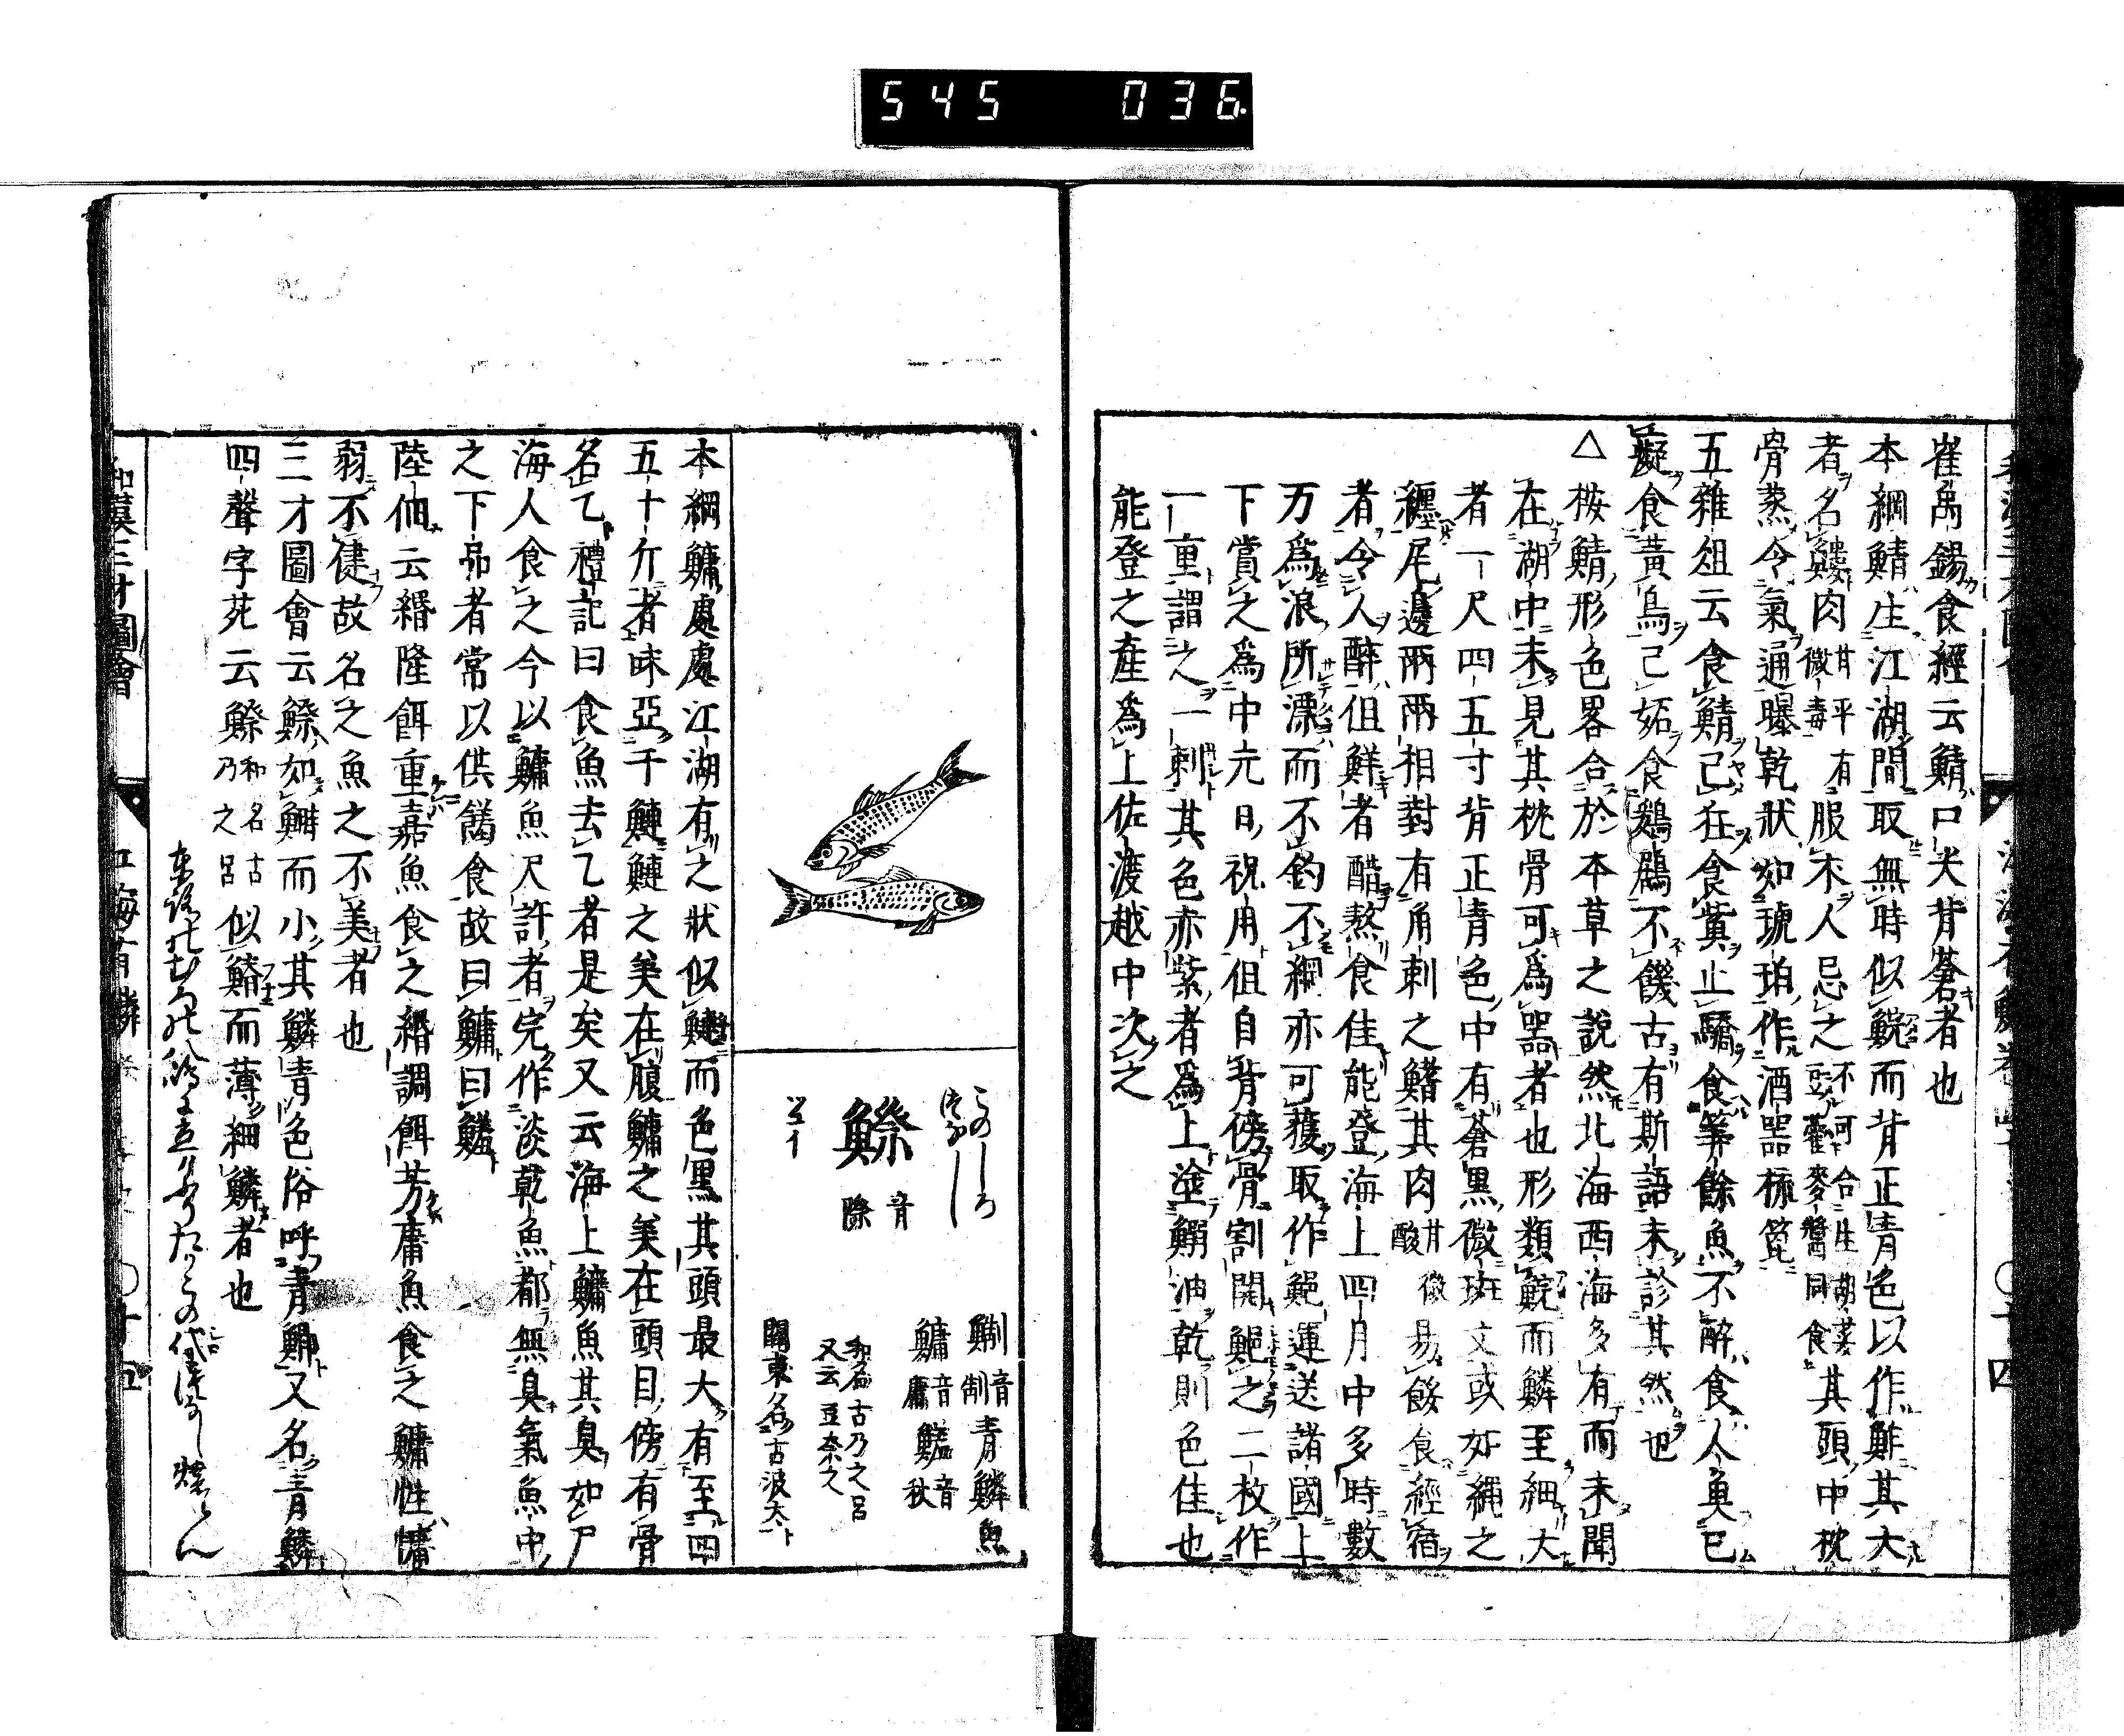 545 036
崔禹錫食經云鯖口尖背蒼者也
本綱鯖生江湖間取無時似鯇而背正青色以作鮓其大
者名䱾肉甘平有微毒服朮人忌之不可合生胡荽豆藿麥醬同食其頭中枕
骨蒸令氣通曝乾狀如琥珀作酒器梳篦
五雜俎云食鯖已狂食鮆止驕食箏餘魚不醉食人魚已
癡食黃鳥已妬食鷄鵲不饑古有斯語未診其然也
△桉鯖形色畧合於本草之說然北海西海多有而未聞
在湖中未見其枕骨可爲器者也形類鯇而鱗至細大
者一尺四五寸背正青色中有蒼黑微斑文或如繩之
纏尾邊兩兩相對有角刺之鰭其肉甘微酸易餒食經宿
者令人醉但鮮者醋熬食佳能登海上四月中多時數
万爲浪所漂而不釣不綱亦可獲取作䱒運送諸國上
下賞之爲中元日祝用但自背傍骨割開䱒之二枚作
一重謂之一刺其色赤紫者爲上塗鰯油乾則色佳也
能登之産爲上佐渡越中次之
このしろ
つなし
鰶音際
ツエイ
鯯音制青鱗魚
鱅音庸鰌音秋
和名古乃之呂
又云豆奈之
關東名古波太
本綱鱅處處江湖有之狀似鰱而色黑其頭最大有至四
五十斤者味亞于鰱鰱之美在腹鱅之美在頭目傍有骨
名乙禮記曰食魚去乙者是矣又云海上鱅魚其臭如尸
海人食之今以鱅魚尺許者完作淡乾魚都無臭氣魚中
之下品者常以供饈食故曰鱅曰鱃
陸佃云緡隆餌重嘉魚食之緡調餌芳庸魚食之鱅性慵
弱不健故名之魚之不美者也
三才圖會云鰶如鯽而小其鱗青色俗呼青鯽又名青鱗
四聲字苑云鰶和名古乃之呂似鰿而薄細鱗者也
和漢三才圖會
江海有鱗